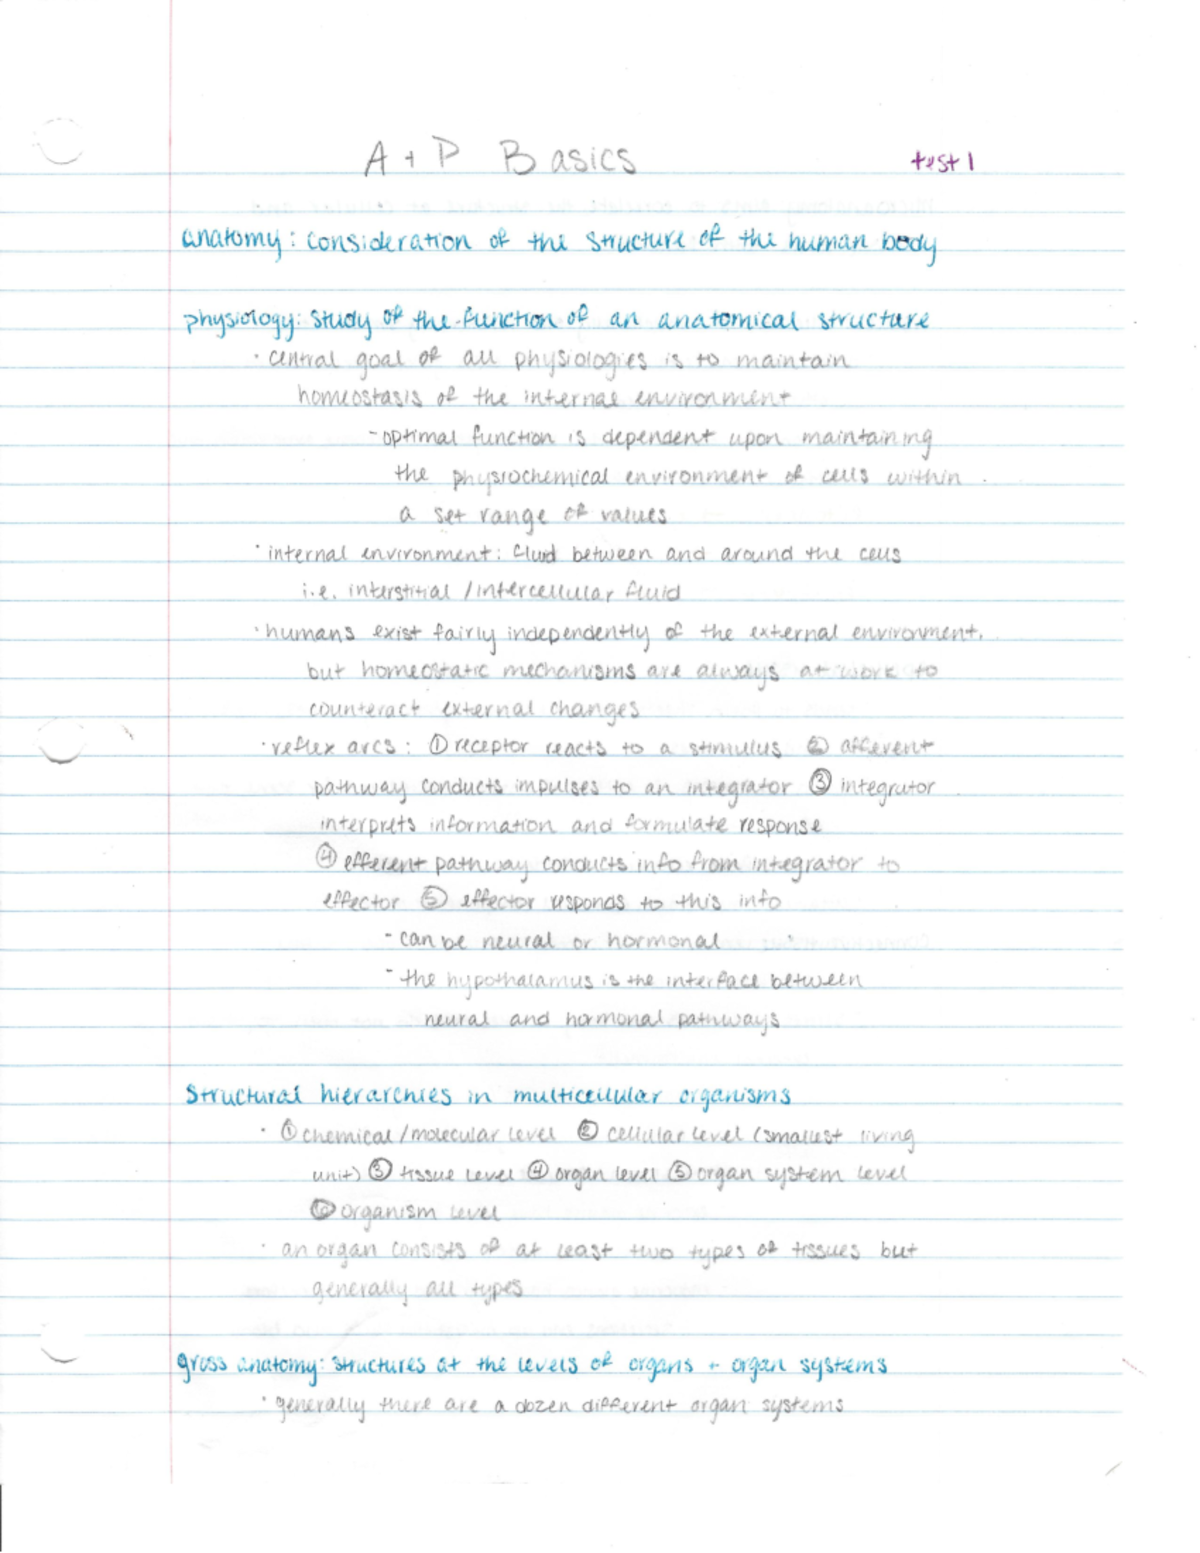 A + P Basics
test 1
anatomy: consideration of the structure of the human body
physiology: study of the function of an anatomical structure
· central goal of all physiologies is to maintain
homeostasis of the internal environment
- optimal function is dependent upon maintaining
the physiochemical environment of cells within
a set range of values
· internal environment: fluid between and around the cells
i.e. interstitial / intercellular fluid
· humans exist fairly independently of the external environment,
but homeostatic mechanisms are always at work to
counteract external changes
· reflex arcs: ① receptor reacts to a stimulus ② afferent
pathway conducts impulses to an integrator ③ integrator
interprets information and formulate response
④ efferent pathway conducts info from integrator to
effector ⑤ effector responds to this info
- can be neural or hormonal
- the hypothalamus is the interface between
neural and hormonal pathways
Structural hierarchies in multicellular organisms
· ① chemical/molecular level ② cellular level (smallest living
unit) ③ tissue level ④ organ level ⑤ organ system level
⑥ organism level
· an organ consists of at least two types of tissues but
generally all types
gross anatomy: structures at the levels of organs + organ systems
· generally there are a dozen different organ systems